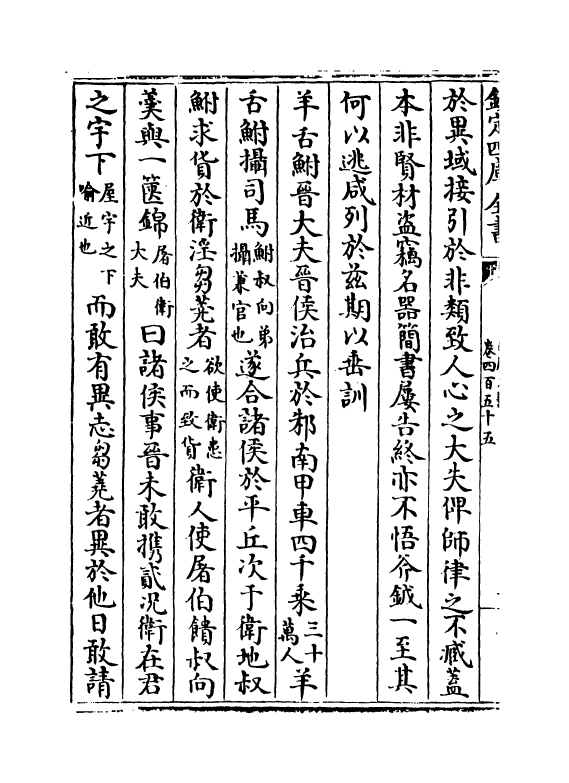 欽定四庫全書
卷四百五十五
於異域接引於非類致人心之大失俾師律之不臧蓋
本非賢材盜竊名器簡書屢告終亦不悟斧鉞一至其
何以逃咸列於兹期以垂訓
羊舌鮒晉大夫晉侯治兵於邾南甲車四千乘三十萬人羊
舌鮒攝司馬鮒叔向弟攝兼官也遂合諸侯於平丘次于衛地叔
鮒求貨於衛淫芻蕘者欲使衛患之而致貨衛人使屠伯饋叔向
羹與一篋錦屠伯衛大夫曰諸侯事晉未敢攜貳況衛在君
之宇下屋宇之下喻近也而敢有異志芻蕘者異於他日敢請